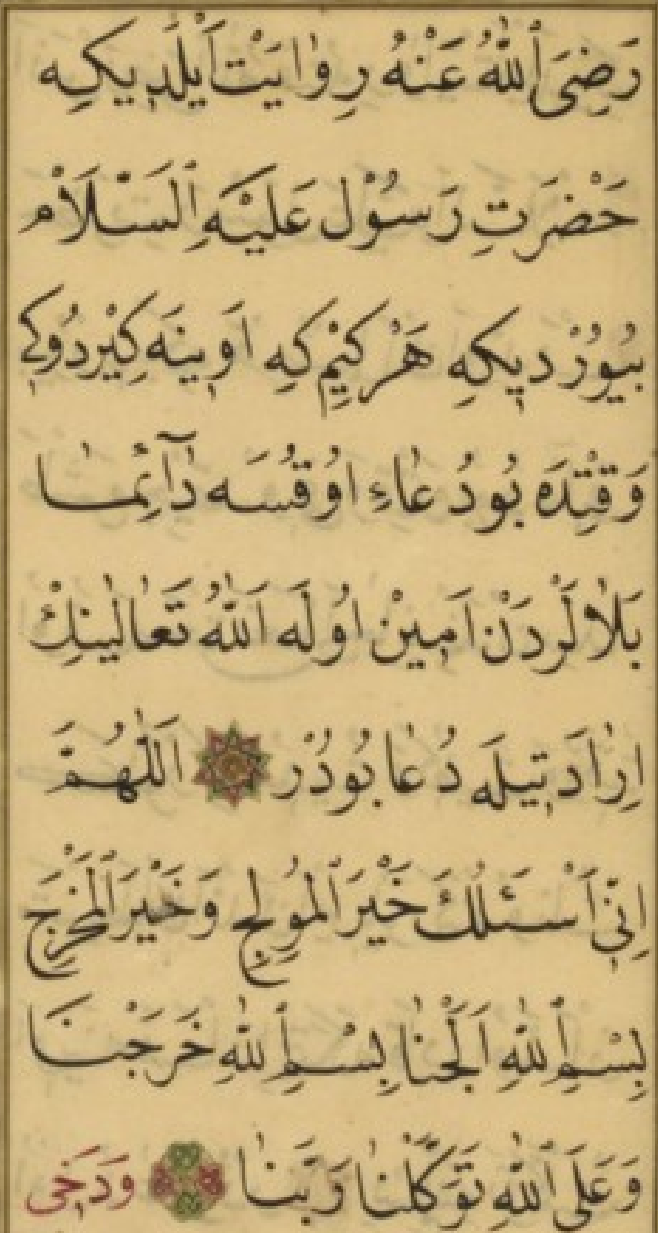 رَضِيَ ٱللّٰهُ عَنْهُ رِوَايَتْ اَيْلَدِيكِه
حَضْرَتِ رَسُوْل عَلَيْهِ ٱلسَّلَامْ
بُيُوُرْدِيكِه هَرْ كِيْم كِه اَوِينَه كِيْردُوكِي
وَقْتِدَه بُو دُعَاءِ اوُقُسَه دَآئِمَا
بَلَالَرْدَنْ اَمِيْن اوُلَه اَللّٰهُ تَعَالٰينِكْ
اِرَادَتِيلَه دُعَا بُودُرْ اَللّٰهُمَّ
اِنِّي اَسْئَلُكَ خَيْرَ ٱلْمُولِجِ وَخَيْرَ ٱلْمَخْرَجِ
بِسْمِ ٱللّٰهِ وَلَجْنَا بِسْمِ ٱللّٰهِ خَرَجْنَا
وَعَلَى ٱللّٰهِ تَوَكَّلْنَا رَبَّنَا وَدَخِي